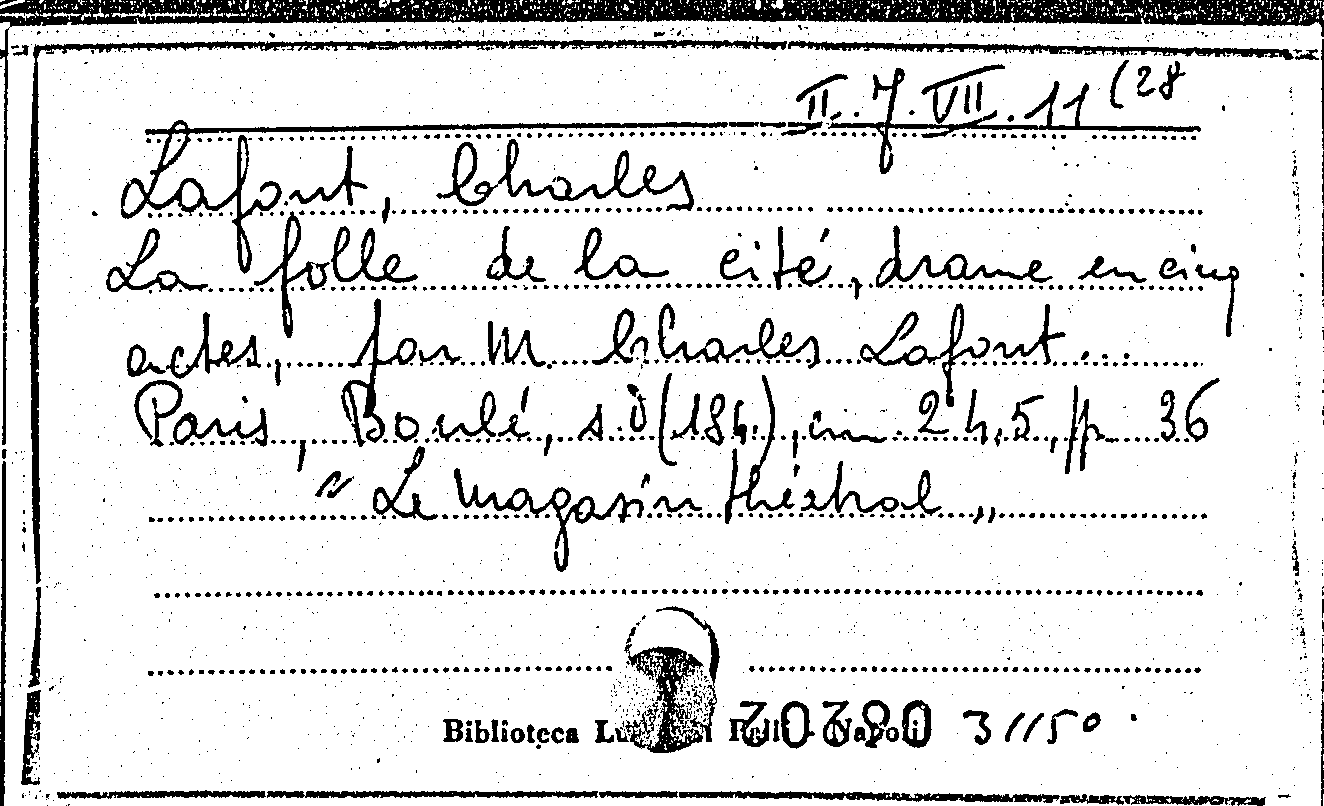 II. 7. VII. 11 (28
Lafont, Charles
La folle de la cité, drame en cinq
actes, par M. Charles Lafont...
Paris, Boulé, s.d (184.), cm. 24,5, pp. 36
"Le Magasin théatral"
Biblioteca Napoli 31150